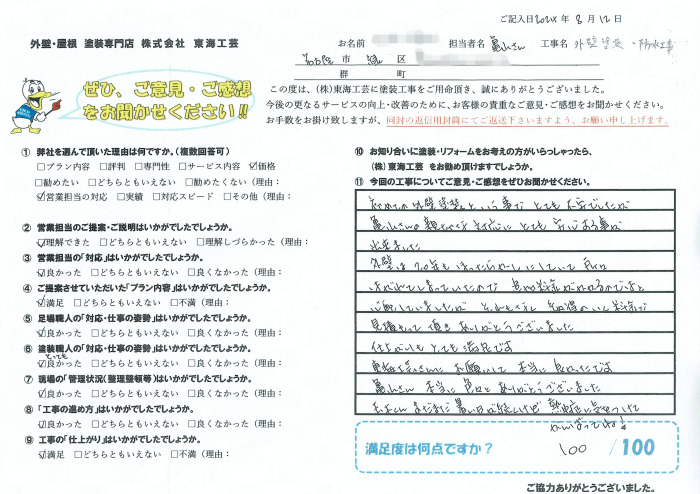 ご記入日2024年 8月 12日
外壁・屋根 塗装専門店 株式会社 東海工芸
お名前
担当者名 亀山さん 工事名 外壁塗装・防水工事
名古屋 市 緑 区
郡 町
ぜひ、ご意見・ご感想
をお聞かせください!!
この度は、(株)東海工芸に塗装工事をご用命頂き、誠にありがとうございました。
今後の更なるサービスの向上・改善のために、お客様の貴重なご意見・ご感想をお聞かせください。
お手数をお掛け致しますが、同封の返信用封筒にてご返送下さいますよう、お願い申し上げます。
① 弊社を選んで頂いた理由は何ですか。(複数回答可)
□プラン内容 □評判 □専門性 □サービス内容 ☑価格
□勧めたい □どちらともいえない □勧めたくない(理由:
☑営業担当の対応 □実績 □対応スピード □その他(理由:
② 営業担当のご提案・ご説明はいかがでしたでしょうか。
☑理解できた □どちらともいえない □理解しづらかった(理由:
③ 営業担当の「対応」はいかがでしたでしょうか。
☑良かった □どちらともいえない □良くなかった(理由:
④ ご提案させていただいた「プラン内容」はいかがでしたでしょうか。
☑満足 □どちらともいえない □不満(理由:
⑤ 足場職人の「対応・仕事の姿勢」はいかがでしたでしょうか。
☑良かった □どちらともいえない □良くなかった(理由:
⑥ 塗装職人の「対応・仕事の姿勢」はいかがでしたでしょうか。
とっても
☑良かった □どちらともいえない □良くなかった(理由:
⑦ 現場の「管理状況(整理整頓等)はいかがでしたでしょうか。
☑良かった □どちらともいえない □良くなかった(理由:
⑧ 「工事の進め方」はいかがでしたでしょうか。
☑良かった □どちらともいえない □良くなかった(理由:
⑨ 工事の「仕上がり」はいかがでしたでしょうか。
☑満足 □どちらともいえない □不満(理由:
⑩ お知り合いに塗装・リフォームをお考えの方がいらっしゃったら、
(株)東海工芸 をお勧め頂けますでしょうか。
⑪ 今回の工事についてご意見・ご感想をぜひお聞かせください。
初めての外壁塗装という事で とても不安でしたが
亀山さんの親切な対応に とても安心する事が
出来ました
外壁は20年も
はがれてしまっていたので
心配していましたが
見積もって頂き ありがとうございました
仕上がりも とても満足です
東海工芸さんに お願いして 本当に良かったです
亀山さん 本当に 色々と ありがとうございました
まだまだ 暑い日が続くけど 熱中症に気をつけて
がんばってね!
満足度は何点ですか? 100 /100
ご協力ありがとうございました。